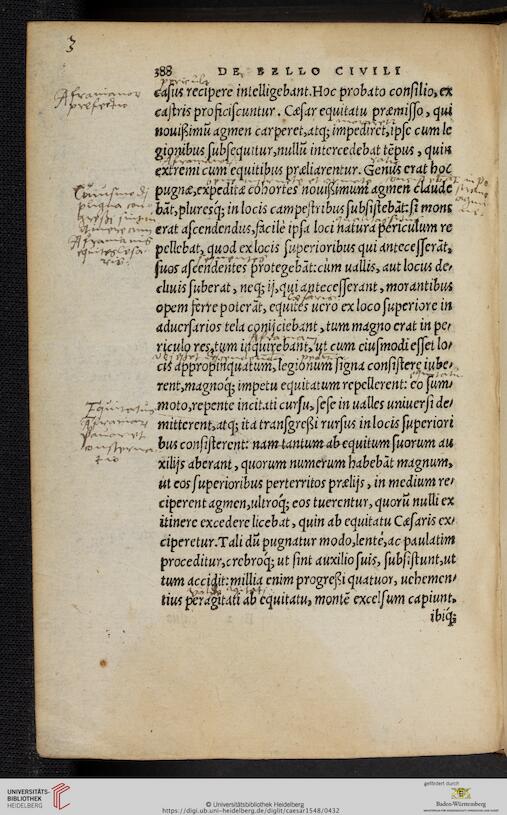 3
388 DE BELLO CIVILI
casus recipere intelligebant. Hoc probato consilio, ex
castris proficiscuntur. Cæsar equitatu præmisso, qui
nouißimũ agmen carperet, atq; impediret, ipse cum le
gionibus subsequitur, nullũ intercedebat tẽpus, quin
extremi cum equitibus præliarentur. Genus erat hoc
pugnæ, expeditæ cohortes nouißimum agmen claude
bãt, pluresq; in locis campestribus subsistebãt: si mons
erat ascendendus, facile ipsa loci natura periculum re
pellebat, quod ex locis superioribus qui antecesserãt,
suos ascendentes protegebãt: cùm uallis, aut locus de-
cliuis suberat, neq; ij, qui antecesserant, morantibus
opem ferre poterãt, equites uero ex loco superiore in
aduersarios tela conijciebant, tum magno erat in pe-
riculo res, tum inquirebant, ut cum eiusmodi essei lo-
cis appropinquatum, legionum signa consistere iube-
rent, magnoq; impetu equitatum repellerent: eo sum-
moto, repente incitati cursu, sese in ualles uniuersi de-
mitterent, atq; ita transgreßi rursus in locis superiori
bus consisterent: nam tantum ab equitum suorum au
xilijs aberant, quorum numerum habebãt magnum,
ut eos superioribus perterritos prælijs, in medium re-
ciperent agmen, ultroq; eos tuerentur, quorũ nulli ex
itinere excedere licebat, quin ab equitatu Cæsaris ex-
ciperetur. Tali dũ pugnatur modo, lentè, ac paulatim
proceditur, crebroq; ut sint auxilio suis, subsistunt, ut
tum accidit: millia enim progreßi quatuor, uehemen-
tius peragitati ab equitatu, montẽ excelsum capiunt,
ibiq;
Afranianor
præfectio
Equitatus
Afranior
pauor et
consterna
tio
UNIVERSITÄTS-
BIBLIOTHEK
HEIDELBERG
© Universitätsbibliothek Heidelberg
https://digi.ub.uni-heidelberg.de/diglit/caesar1548/0432
gefördert durch
Baden-Württemberg